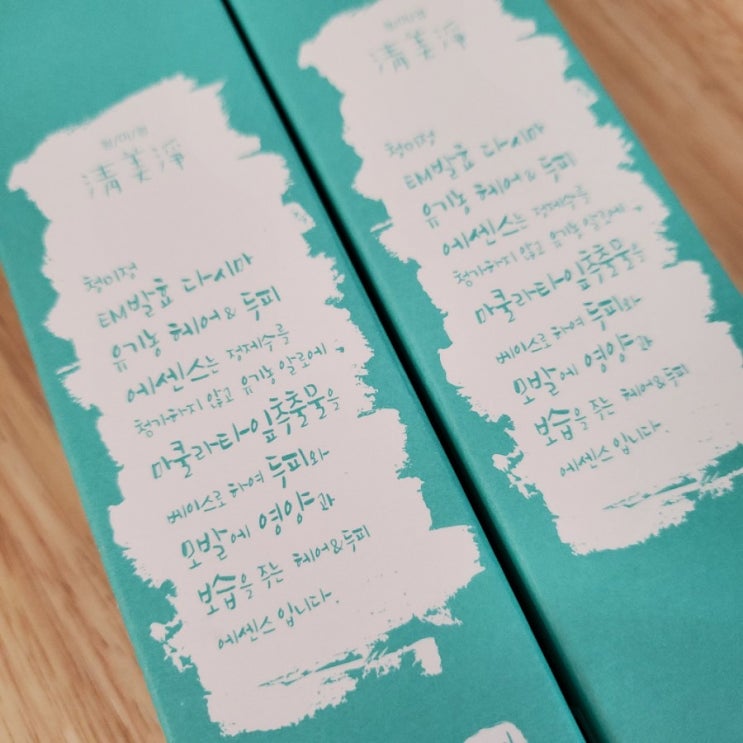 청미정
淸美淨
청미정
EM발효 다시마
유기농 헤어 & 두피
에센스는 정제수를
첨가하지 않고 유기농 알로에
마쿨라타잎추출물을
베이스로 하여 두피와
모발에 영양과
보습을 주는 헤어&두피
에센스입니다.
청미정
淸美淨
청미정
EM발효 다시마
유기농 헤어 & 두피
에센스는 정제수를
첨가하지 않고 유기농 알로에
마쿨라타잎추출물을
베이스로 하여 두피와
모발에 영양과
보습을 주는 헤어&두피
에센스입니다.